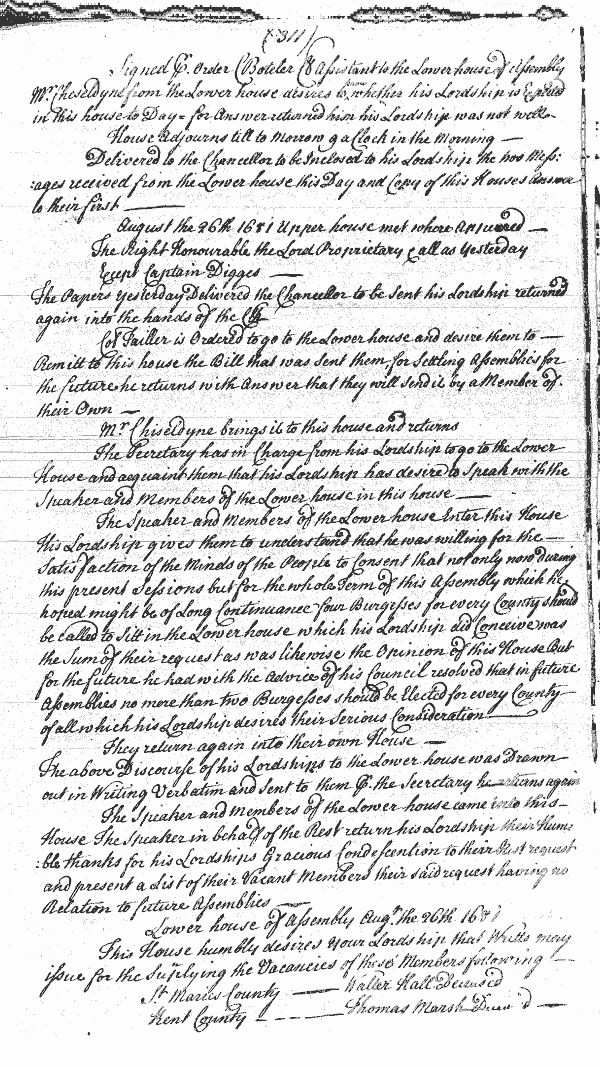 (311)
Signed P. Order C Boteler Cl Assistant to the Lower house of Assembly
Mr Cheseldyne from the Lower house desires to know whether his Lordship is Expected
in this house to Day = for Answer returned him his Lordship was not well.
House Adjourns till to Morrow 9 a Clock in the Morning —
Delivered to the Chancellor to be Inclosed to his Lordship the two Mess:
:ages received from the Lower house this Day and Copy of this Houses answer
to their first —
August the 26th 1681 Upper house met where Appeared —
The Right Honourable the Lord Proprietary & all as Yesterday
Except Captain Digges —
The Papers Yesterday Delivered the Chancellor to be sent his Lordship returned
again into the hands of the Clk
Col Tailler is Ordered to go to the Lower house and desire them to —
Remitt to this house the Bill that was sent them for Settling Assemblies for
the future he returns with Answer that they will send it by a Member of
their Own —
Mr Chiseldyne brings it to this house and returns
The Secretary has in Charge from his Lordship to go to the Lower
House and acquaint them that his Lordship has desire to Speak with the
Speaker and Members of the Lower house in this house —
The Speaker and Members of the Lower house Enter this House
His Lordship gives them to understand that he was willing for the —
Satisfaction of the Minds of the People to Consent that not only now during
this present Sessions but for the whole Term of this Assembly which he
hoped might be of Long Continuance four Burgesses for every County should
be called to Sitt in the Lower house which his Lordship did Conceive was
the Sum of their request as was likewise the Opinion of this House But
for the future he had with the Advice of his Council resolved that in future
Assemblies no more than two Burgesses should be Elected for every County
of all which his Lordship desires their Serious Consideration —
They return again into their own House —
The above Discourse of his Lordships to the Lower house was Drawn
out in Writing Verbatim and Sent to them P. the Secretary he returns again
The Speaker and Members of the Lower house came into this —
House The Speaker in behalf of the Rest return his Lordship their Hum:
:ble thanks for his Lordships Gracious Condescention to their last request
and present a List of their Vacant Members their said request having no
Relation to future Assemblies —
Lower house of Assembly Augt. the 26th 1681
This House humbly desires your Lordship that Writts may
issue for the Supplying the Vacancies of these Members following —
St Maries County — Walter Hall Deceased
Kent County — Thomas Marsh Deceas'd —